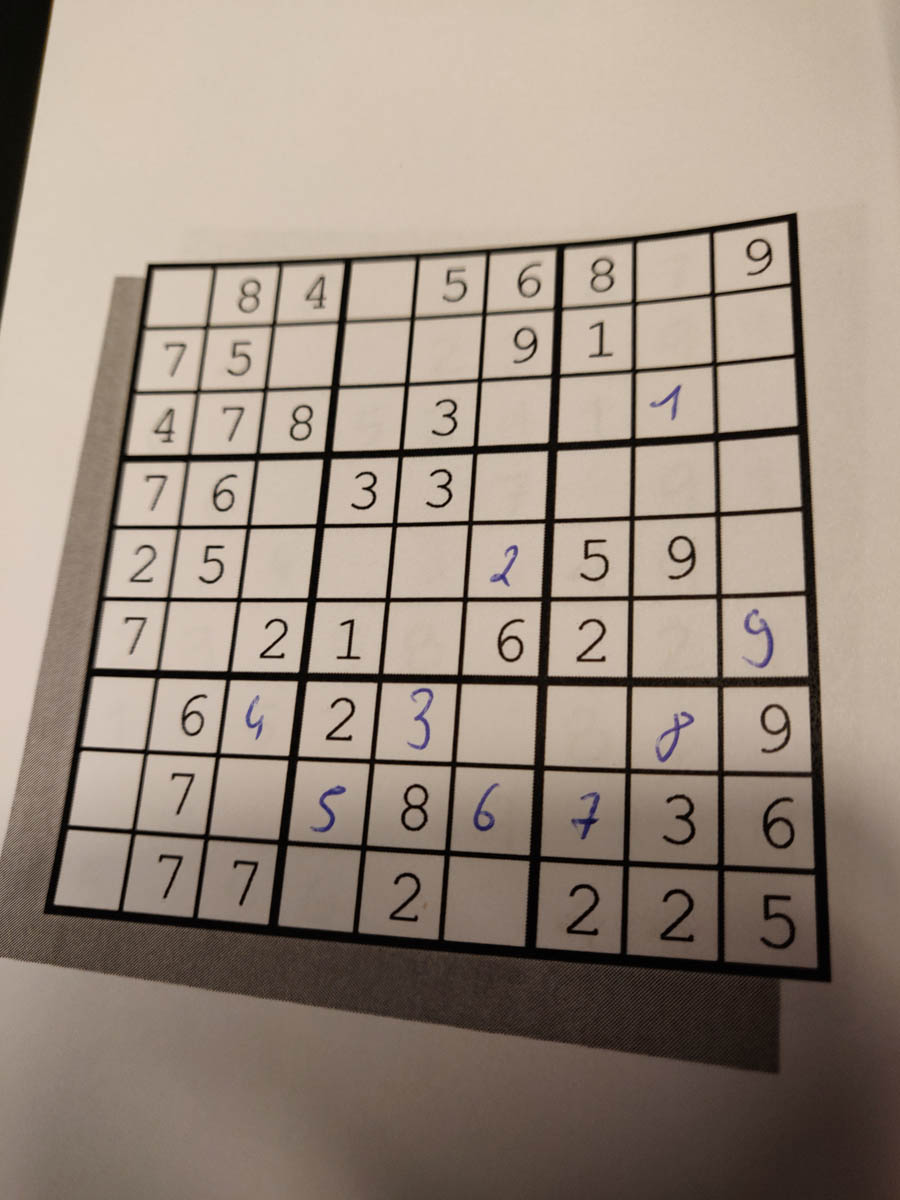 8 4 5 6 8 9
7 5 9 1
4 7 8 3 1
7 6 3 3
2 5 2 5 9
7 2 1 6 2 9
6 4 2 3 8 9
7 5 8 6 7 3 6
7 7 2 2 2 5